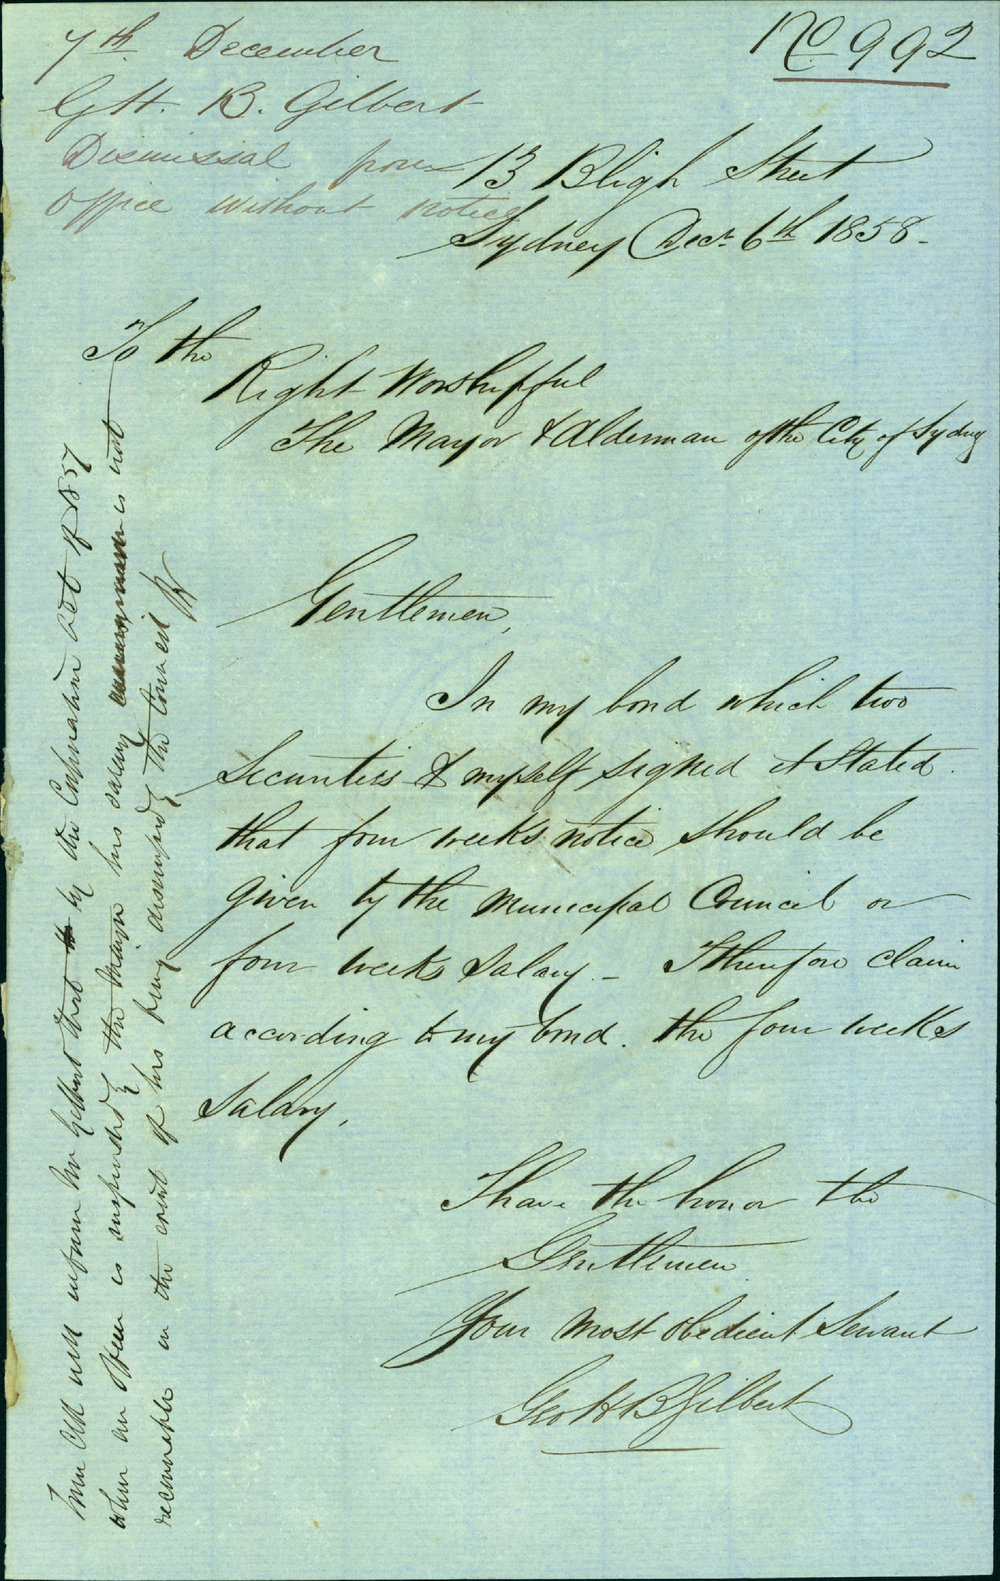 No 992
7th December
G H. B. Gilbert
Dismissal from
Office without notice
13 Bligh Street
Sydney Decr 6th 1858.
To the
Right Worshipful
The Mayor & Alderman of the City of Sydney
Gentlemen,
In my bond which two
Securities & myself signed it Stated
that four weeks notice should be
given by the Municipal Council or
four weeks Salary – I therefore claim
according to my bond. the four weeks
Salary,
I have the honor to be
Gentlemen
Your most obedient Servant
Geo H B Gilbert
Town Clk will inform Mr Gilbert that by the Corporation Act of 1857
when an officer is suspended by the Mayor his salary is not
recoverable in the event of his being dismissed by the Council